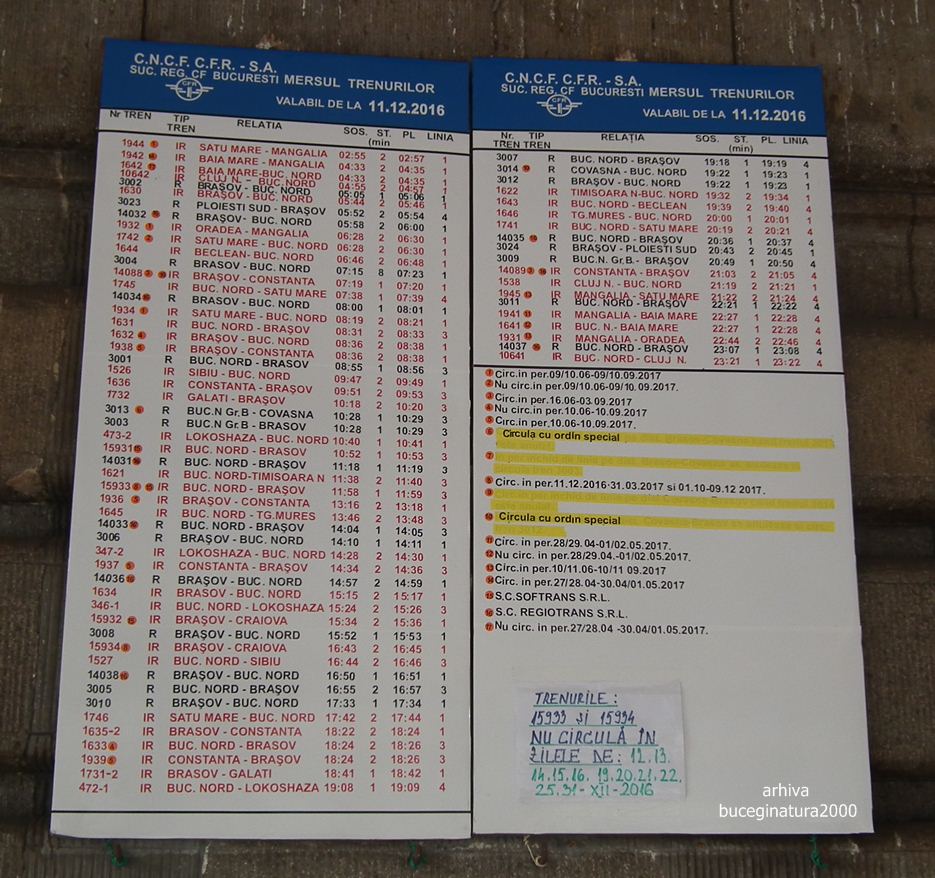 C.N.C.F. C.F.R. - S.A.
SUC. REG. CF BUCURESTI MERSUL TRENURILOR
CFR
VALABIL DE LA 11.12.2016
Nr TREN TIP TREN RELATIA SOS. ST. (min PL LINIA
1944 1 IR SATU MARE - MANGALIA 02:55 2 02:57 1
1942 IR BAIA MARE - MANGALIA 04:33 2 04:35 1
1642 IR BAIA MARE-BUC. NORD 04:33 2 04:35 1
10642 IR CLUJ N. - BUC. NORD 04:55 2 04:57
3002 R BRAŞOV - BUC. NORD 05:05 1 05:06 1
1630 IR BRAŞOV - BUC. NORD 05:44 2 05:46 1
3023 R PLOIESTI SUD - BRAŞOV 05:52 2 05:54 4
14032 16 R BRAŞOV- BUC. NORD 05:58 2 06:00 1
1932 1 IR ORADEA - MANGALIA 06:28 2 06:30 1
1742 2 IR SATU MARE - BUC. NORD 06:28 2 06:30 1
1644 IR BECLEAN- BUC. NORD 06:46 2 06:48 1
3004 R BRASOV - BUC. NORD 07:15 8 07:23 1
14088 3 16 IR BRAŞOV - CONSTANTA 07:19 1 07:20 1
1745 IR BUC. NORD - SATU MARE 07:38 1 07:39 4
14034 16 R BRASOV - BUC. NORD 08:00 1 08:01 1
1934 1 IR SATU MARE - BUC. NORD 08:19 2 08:21 1
1631 IR BUC. NORD - BRAŞOV 08:31 2 08:33 3
1632 4 IR BRAŞOV - BUC. NORD 08:36 2 08:38 1
1938 5 IR BRAŞOV - CONSTANTA 08:36 2 08:38 1
3001 R BUC. NORD - BRAŞOV 08:55 1 08:56 3
1526 IR SIBIU - BUC. NORD 09:47 2 09:49 1
1636 IR CONSTANTA - BRAŞOV 09:51 2 09:53 3
1732 IR GALATI - BRAŞOV 10:18 2 10:20 3
3013 6 R BUC.N Gr.B - COVASNA 10:28 1 10:29 3
3003 R BUC.N Gr.B - BRASOV 10:28 1 10:29 3
473-2 IR LOKOSHAZA - BUC. NORD 10:40 1 10:41 1
15931 15 IR BRAŞOV - BUC. NORD 10:52 1 10:53 1
14031 16 R BUC. NORD - BRAŞOV 11:18 1 11:19 3
1621 IR BUC. NORD-TIMISOARA N 11:38 2 11:40 3
15933 8 15 IR BUC. NORD - BRAŞOV 11:58 1 11:59 3
1936 5 IR BRAŞOV - CONSTANTA 13:16 2 13:18 1
1645 IR BUC. NORD - TG.MURES 13:46 2 13:48 3
14033 16 R BUC. NORD - BRAŞOV 14:04 1 14:05 3
3006 R BRAŞOV - BUC. NORD 14:10 1 14:11 1
347-2 IR LOKOSHAZA - BUC. NORD 14:28 2 14:30 1
1937 5 IR CONSTANTA - BRAŞOV 14:34 2 14:36 3
14036 16 R BRAŞOV - BUC. NORD 14:57 2 14:59 1
1634 IR BRASOV - BUC. NORD 15:15 2 15:17 1
346-1 IR BUC. NORD - LOKOSHAZA 15:24 2 15:26 3
15932 15 IR BRAŞOV - CRAIOVA 15:34 2 15:36 1
3008 R BRAŞOV - BUC. NORD 15:52 1 15:53 1
15934 8 IR BRAŞOV - CRAIOVA 16:43 2 16:45 1
1527 IR BUC. NORD - SIBIU 16:44 2 16:46 3
14038 16 R BRAŞOV - BUC. NORD 16:50 1 16:51 1
3005 R BUC. NORD - BRAŞOV 16:55 2 16:57 3
3010 R BRAŞOV - BUC. NORD 17:33 1 17:34 1
1746 IR SATU MARE - BUC. NORD 17:42 2 17:44 1
1635-2 IR BRASOV - CONSTANTA 18:22 2 18:24 1
1633 4 IR BUC. NORD - BRASOV 18:24 2 18:26 3
1939 5 IR CONSTANTA - BRASOV 18:24 2 18:26 3
1731-2 IR BRASOV - GALATI 18:41 1 18:42 1
472-1 IR BUC. NORD - LOKOSHAZA 19:08 1 19:09 4
C.N.C.F. C.F.R. - S.A.
SUC. REG. CF BUCURESTI MERSUL TRENURILOR
CFR
VALABIL DE LA 11.12.2016
Nr. TREN TIP TREN RELAŢIA SOS. ST. (min) PL. LINIA
3007 R BUC. NORD - BRAŞOV 19:18 1 19:19 4
3014 10 R COVASNA - BUC. NORD 19:22 1 19:23 1
3012 R BRAŞOV - BUC. NORD 19:22 1 19:23 1
1622 IR TIMISOARA N-BUC. NORD 19:32 2 19:34 1
1643 IR BUC. NORD - BECLEAN 19:39 2 19:40 4
1646 IR TG.MURES - BUC. NORD 20:00 1 20:01 1
1741 IR BUC. NORD - SATU MARE 20:19 2 20:21 4
14035 16 R BUC. NORD - BRAŞOV 20:36 1 20:37 4
3024 R BRAŞOV - PLOIESTI SUD 20:43 2 20:45 1
3009 R BUC.N Gr.B.- BRAŞOV 20:49 1 20:50 4
14089 3 16 IR CONSTANTA - BRAŞOV 21:03 2 21:05 4
1538 IR CLUJ N. - BUC. NORD 21:19 2 21:21 1
1945 13 IR MANGALIA - SATU MARE 21:22 2 21:24 4
3011 R BUC. NORD - BRAŞOV 22:21 1 22:22 4
1941 11 IR MANGALIA - BAIA MARE 22:27 1 22:28 4
1641 12 IR BUC. N.- BAIA MARE 22:27 1 22:28 4
1931 13 IR MANGALIA - ORADEA 22:44 2 22:46 4
14037 16 R BUC. NORD - BRAŞOV 23:07 1 23:08 4
10641 IR BUC. NORD - CLUJ N. 23:21 1 23:22 4
1 Circ.in per.09/10.06-09/10.09.2017
2 Nu circ.in per.09/10.06-09/10.09.2017.
3 Circ.in per.16.06-03.09.2017
4 Nu circ.in per.10.06-10.09.2017
5 Circ.in per.10.06-10.09.2017
6 Circula cu ordin special
7
8 Circ.in per.11.12.2016-31.03.2017 si 01.10-09.12 2017.
9
10 Circula cu ordin special
11 Circ. in per.28/29.04.-01/02.05.2017.
12 Nu circ. in per.28/29.04.-01/02.05.2017.
13 Circ. in per.10/11.06-10/11 09.2017
14 Circ. in per.27/28.04-30.04/01.05.2017
15 S.C.SOFTRANS S.R.L.
16 S.C. REGIOTRANS S.R.L.
17 Nu circ. in per.27/28.04 -30.04/01.05.2017.
TRENURILE :
15933 și 15934
NU CIRCULĂ ÎN
ZILELE DE: 12.13.
14.15.16. 19.20.21.22.
25.31 - XII - 2016
arhiva
buceginatura2000